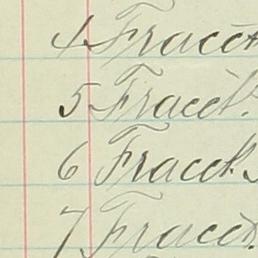 4 Fracct
5 Fracct.
6 Fracct.
7 Fracct.